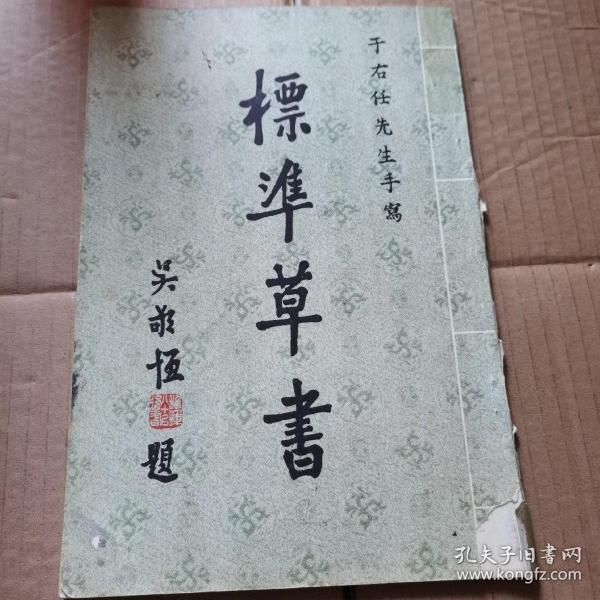 于右任先生手寫
標準草書
吳敬恆
題
孔夫子旧書网
www.kongfz.com